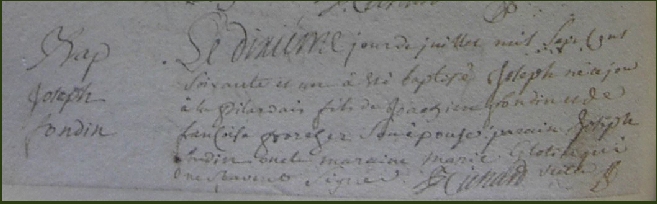 Bap
Joseph
Sondin
Le dixième jour de juillet mil sept cent
soixante et un à été baptisé Joseph né ce jour
à la Pilardais fils de Joachim Sondin et de
francoise son épouse parain Joseph
Sondin oncle maraine marie qui
ne savent signer